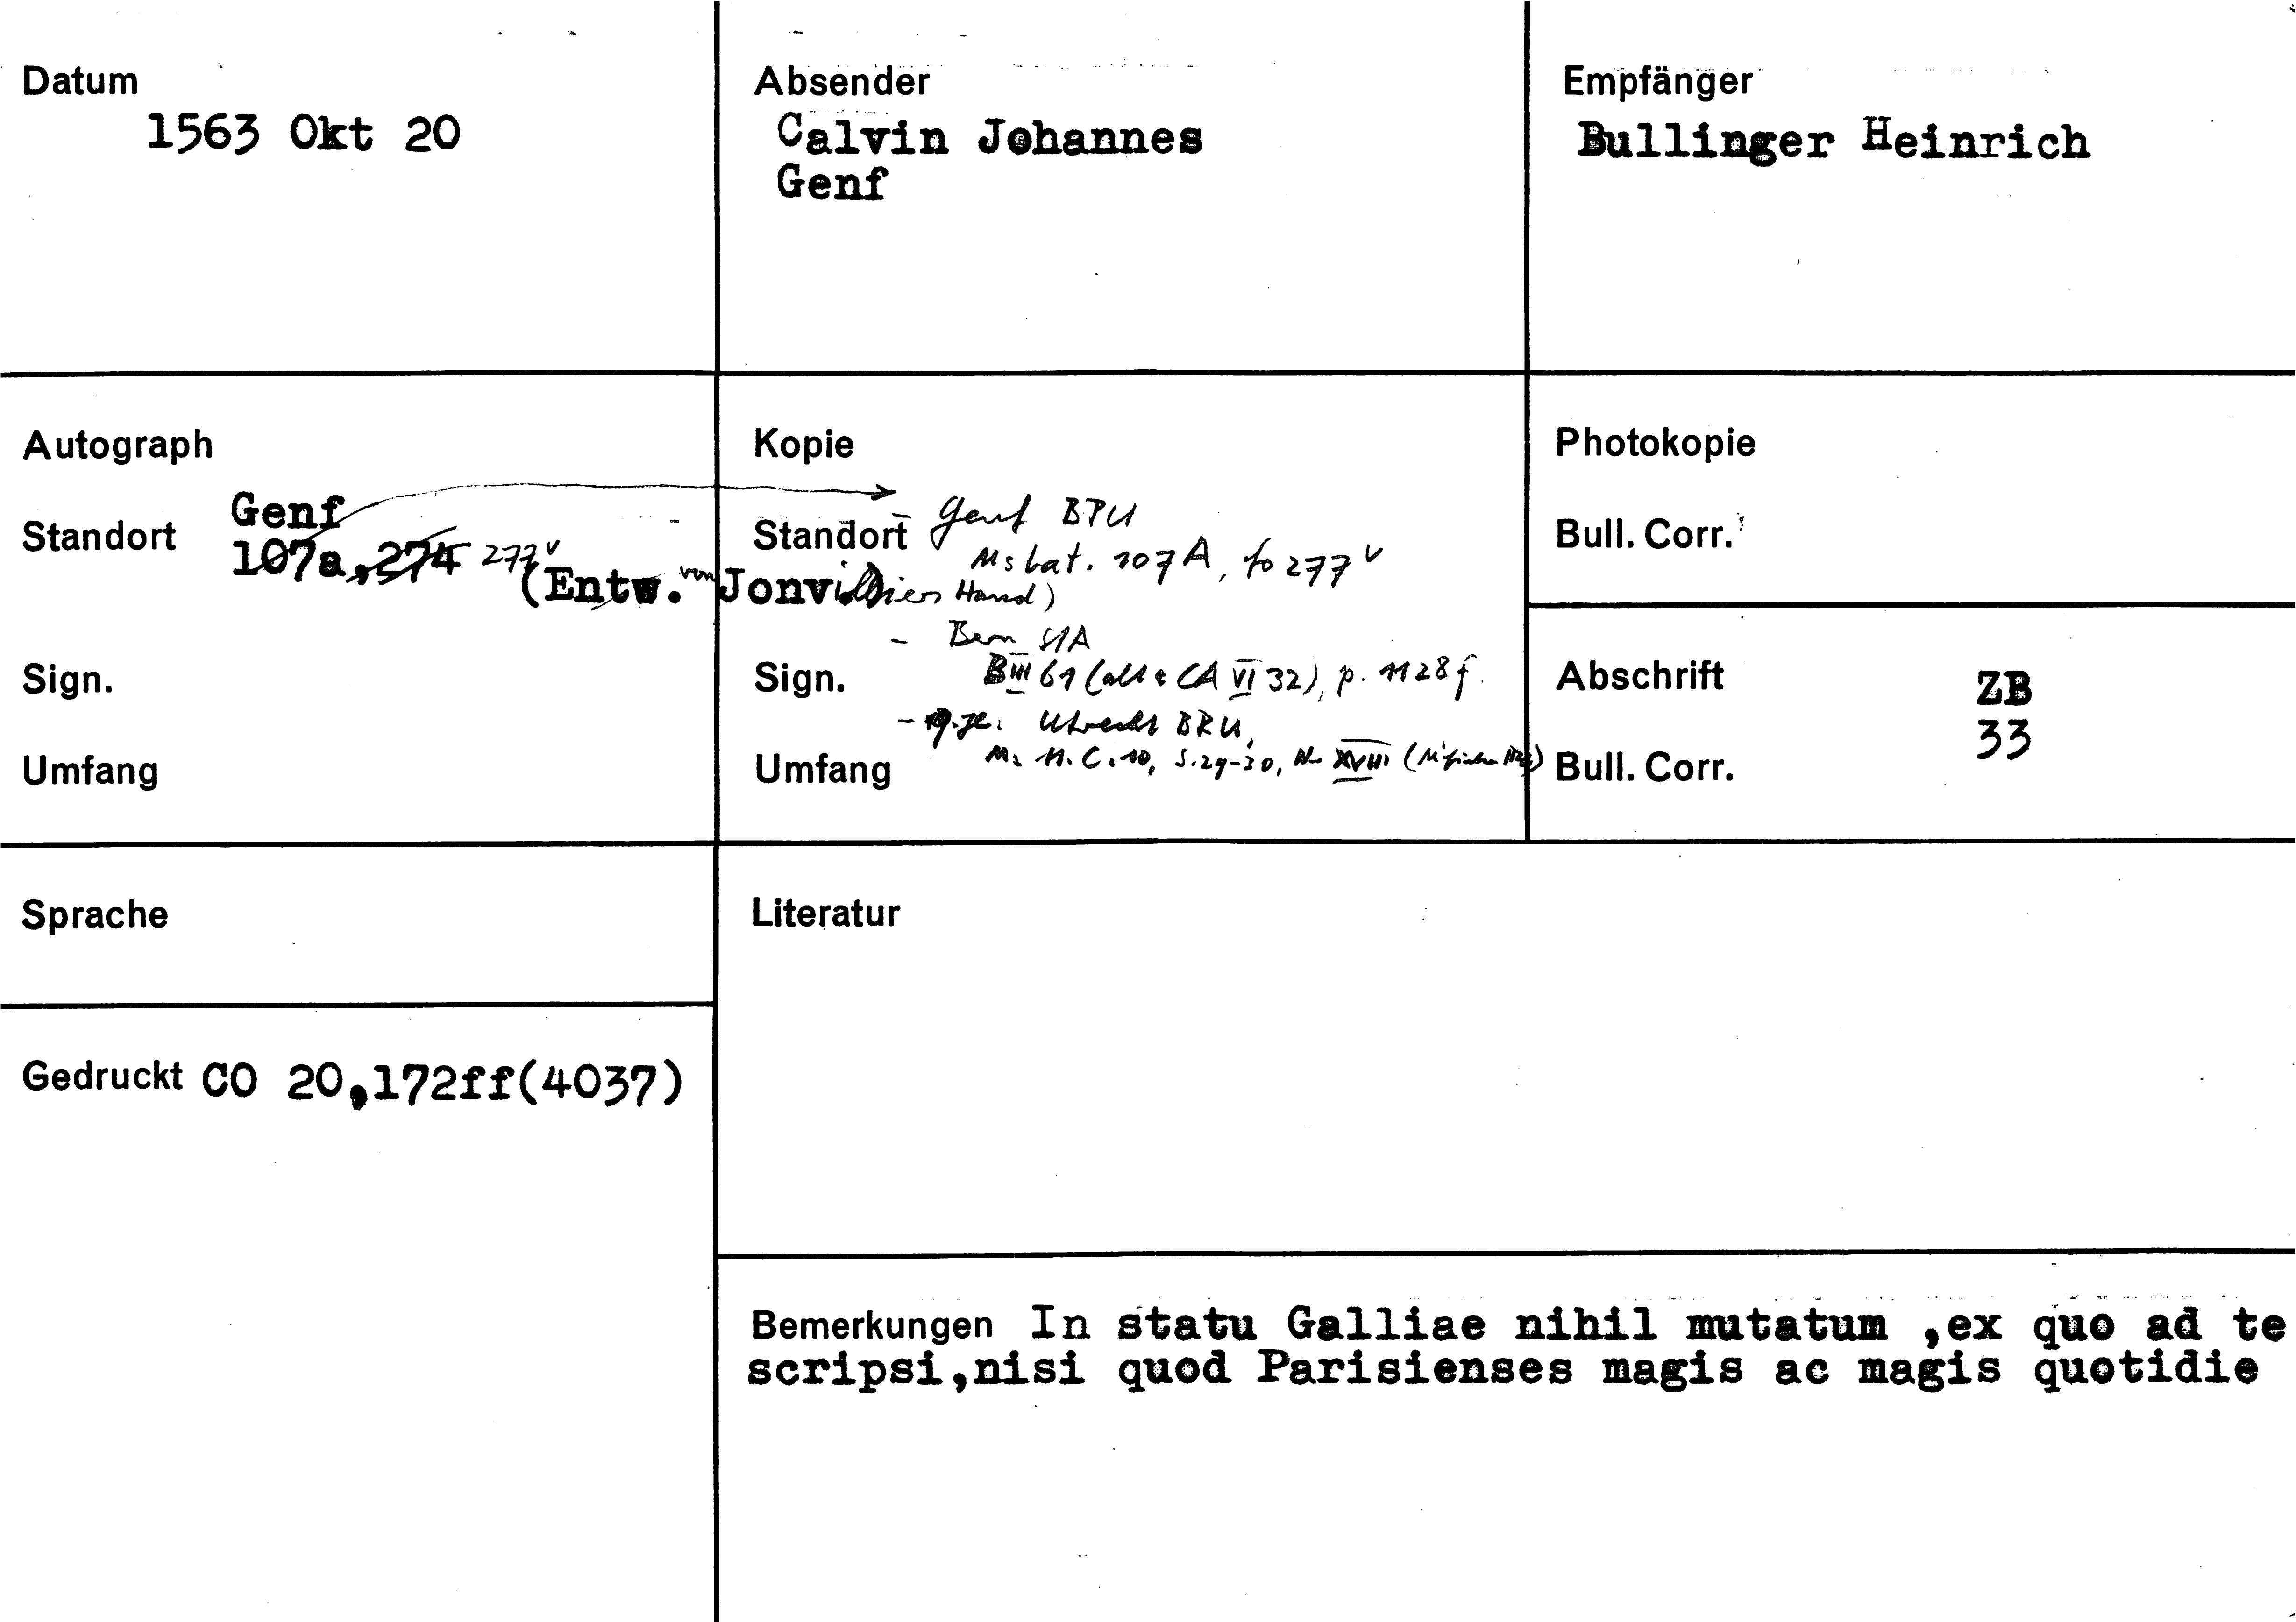 Datum
1563 Okt 20
Absender
Calvin Johannes
Genf
Empfänger
Bullinger Heinrich
Autograph
Standort
Genf
107a,274 277v
(Entw. von Jonvilliers Hand)
Sign.
Umfang
Kopie
Standort
- Genf BPU
Ms Lat. 107A, fo 277v
Sign.
- Bern StA
B III 61 (alt: CA VI 32), p. 1128f.
Umfang
- 19. Jh.: Utrecht BRU,
Ms 11.C.10, S. 29-30, Nr. XVIII
Photokopie
Bull. Corr.
Abschrift
ZB
33
Bull. Corr.
Sprache
Literatur
Gedruckt CO 20,172ff(4037)
Bemerkungen In statu Galliae nihil mutatum ,ex quo ad te
scripsi,nisi quod Parisienses magis ac magis quotidie